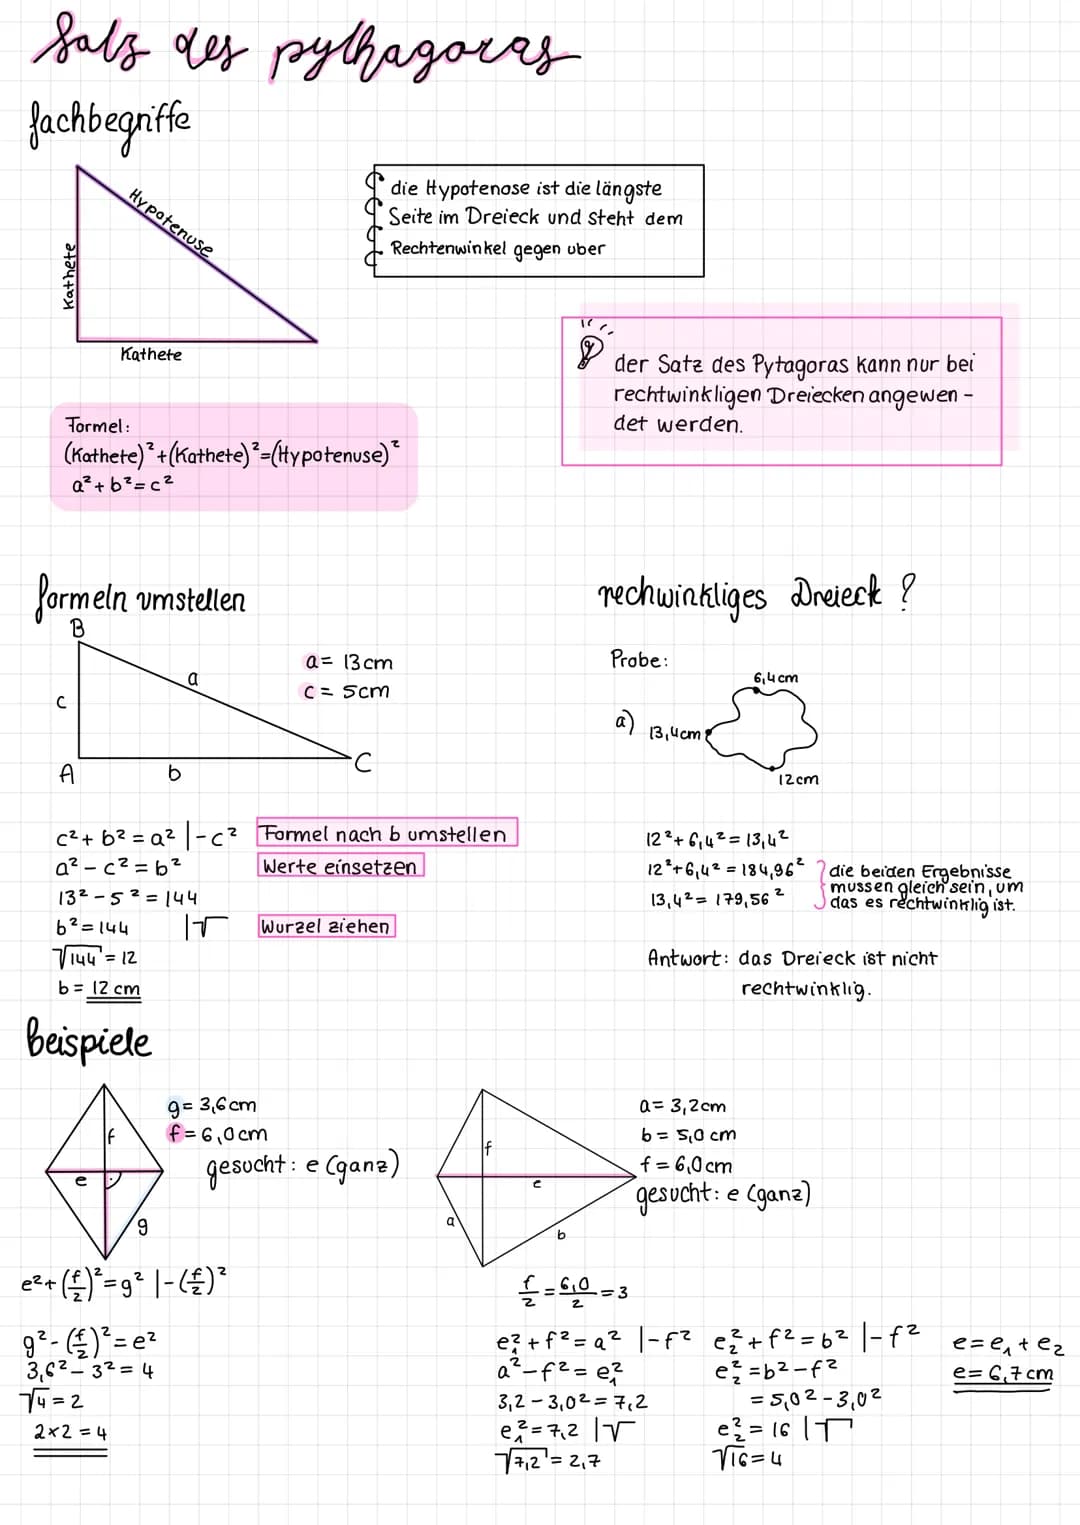 Satz des pythagoras
fachbegriffe
Hypotenuse
Kathete
Kathete
die Hypotenose ist die längste
Seite im Dreieck und steht dem
Rechtenwinkel gegen uber
der Satz des Pytagoras kann nur bei
rechtwinkligen Dreiecken angewen-
det werden.
Formel:
(Kathete)²+(Kathete)²=(Hypotenuse)²
a²+b²=c²
formeln umstellen
B
a
c
A
b
C
a= 13cm
c= 5cm
c²+b²=a² |-c² Formel nach b umstellen
a²-c²=b² Werte einsetzen
13²-5²=144
b²=144 |√ Wurzel ziehen
√144=12
b= 12 cm
rechwinkliges Dreieck?
Probe:
a)
6,4cm
13,4cm
12cm
12²+6,4²=13,4²
12²+6,4²=184,96²
13,4²=179,56²
die beiden Ergebnisse
mussen gleich sein, um
das es rechtwinklig ist.
Antwort: das Dreieck ist nicht
rechtwinklig.
beispiele
f
e
g
g= 3,6cm
f= 6,0cm
gesucht: e (ganz)
e²+(f/2)²=g² |-(f/2)²
g²-(f/2)²=e²
3,6²-3²=4
√4=2
2x2=4
f
e
a
b
a= 3,2cm
b= 5,0 cm
f= 6,0cm
gesucht: e (ganz)
f/2=6,0/2=3
e₁²+f²=a² |-f²
a²-f²=e₁²
3,2-3,0²=7,2
e₁²=7,2 |√
√7,2=2,7
e₂²+f²=b² |-f²
e₂²=b²-f²
=5,0²-3,0²
e₂²=16 |√
√16=4
e=e₁+e₂
e=6,7cm